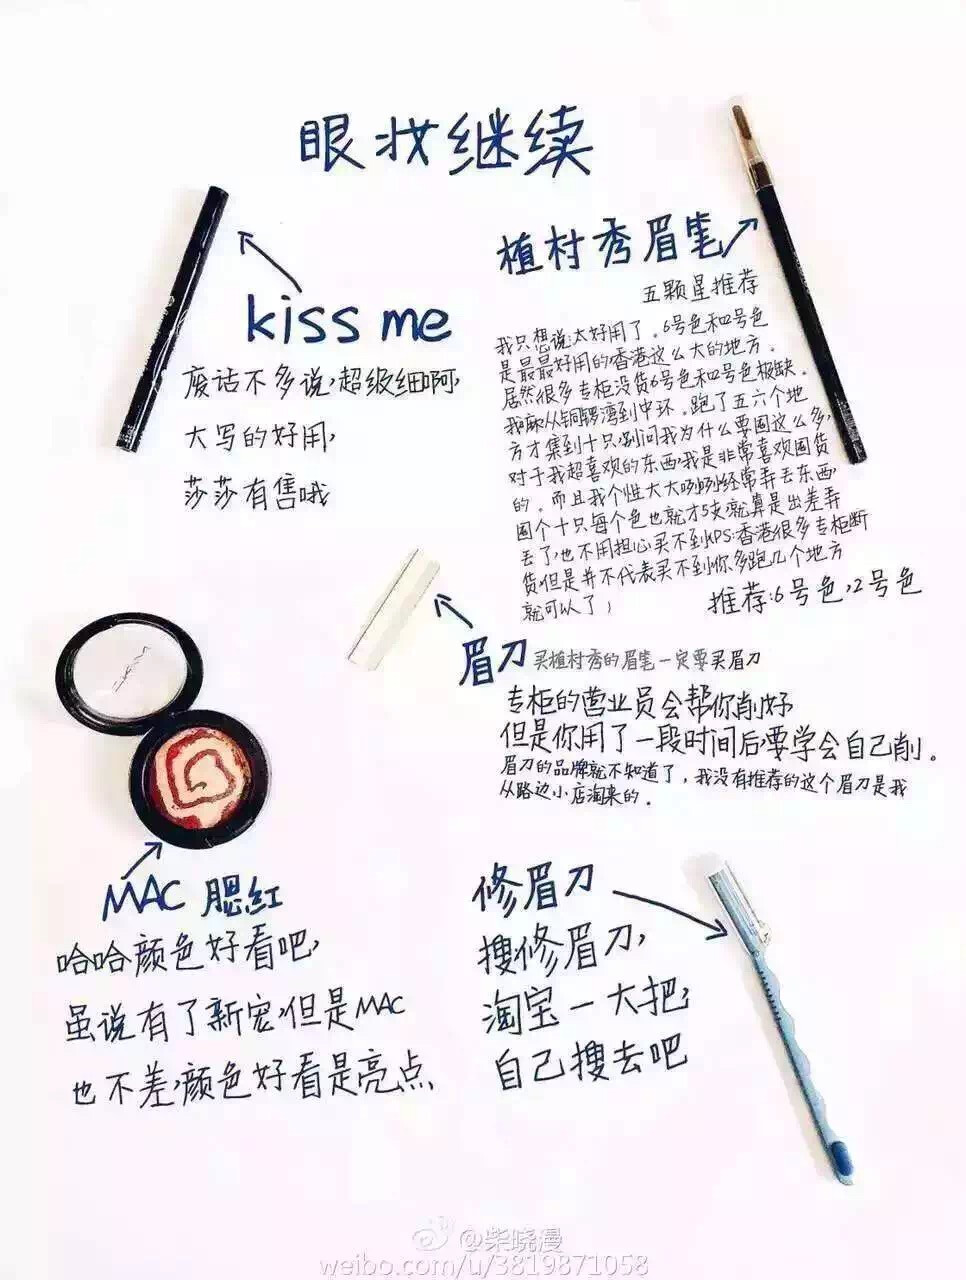 眼妆继续
kiss me
废话不多说,超级细啊,
大写的好用,
莎莎有售哦
植村秀眉笔
五颗星推荐
我只想说太好用了。6号色和2号色
是最最好用的香港这么大的地方。
居然很多专柜没货6号色和2号色极缺。
我麻从铜锣湾到中环。跑了五六个地
方才集到十只,别问我为什么要囤这么多,
对于我超喜欢的东西,我是非常喜欢囤货
的。而且我个性大大咧咧经常弄丢东西,
囤个十只每个色也就才5支,就算是出差弄
丢了,也不用担心买不到!PS:香港很多专柜断
货但是并不代表买不到你多跑几个地方
就可以了;
推荐:6号色,2号色
眉刀 买植村秀的眉笔一定要买眉刀
专柜的营业员会帮你削好
但是你用了一段时间后,要学会自己削。
眉刀的品牌就不知道了,我没有推荐的这个眉刀是我
从路边小店淘来的。
MAC
MAC 腮紅
哈哈颜色好看吧,
虽说有了新宠,但是MAC
也不差,颜色好看是亮点
修眉刀
搜修眉刀,
淘宝一大把;
自己搜去吧
@柴晓漫
weibo.com/u/3819871058